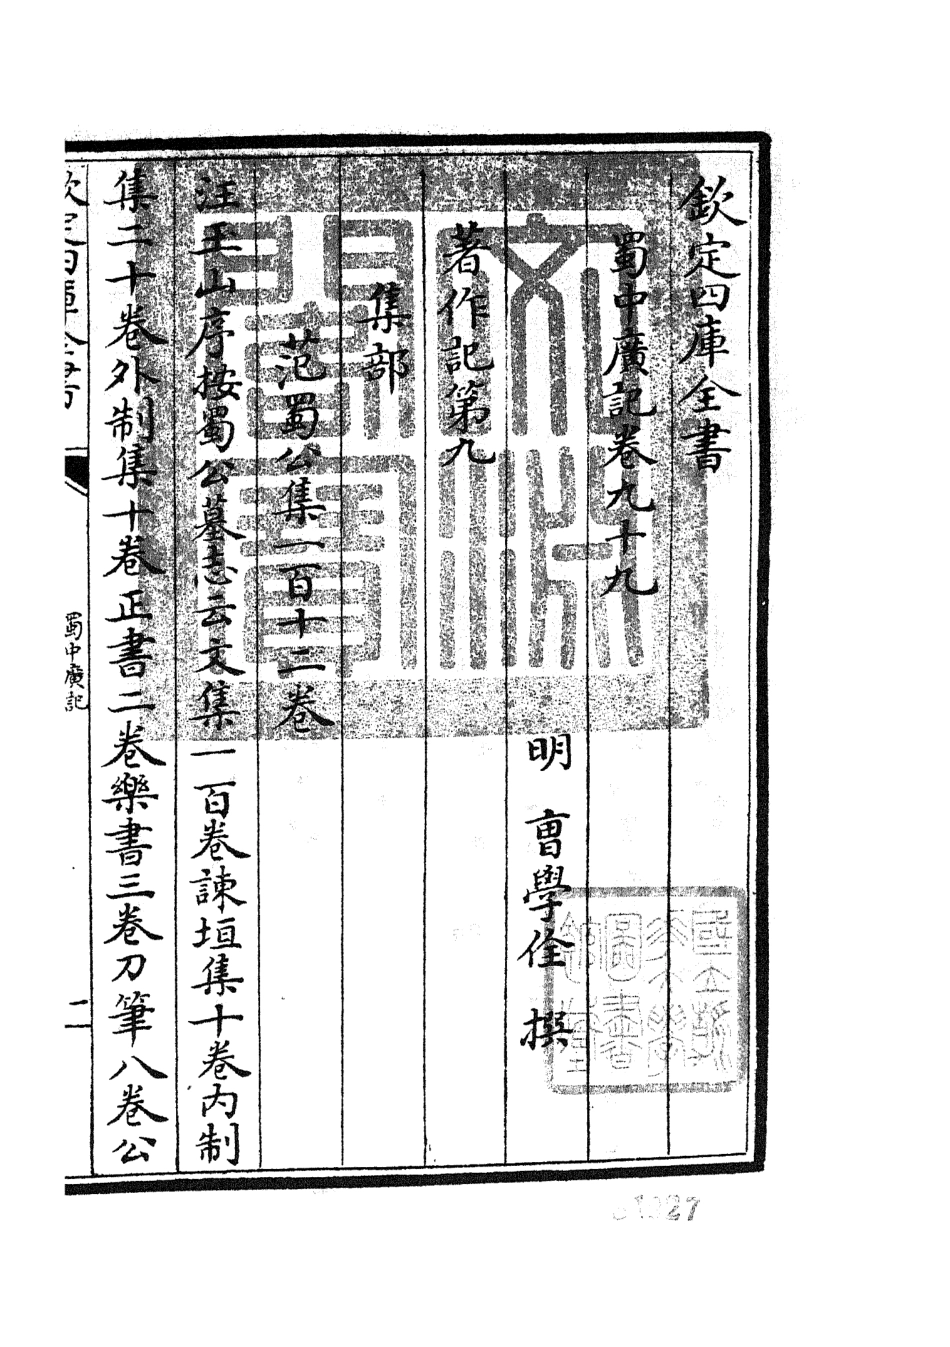 欽定四庫全書
蜀中廣記卷九十九
明 曹學佺 撰
著作記第九
集部
范蜀公集一百十二卷
汪玉山序按蜀公墓志云文集一百卷諫垣集十卷内制
集二十卷外制集十卷正書二卷樂書三卷刀筆八卷公
欽定四庫全書
蜀中廣記
二
文淵閣寶